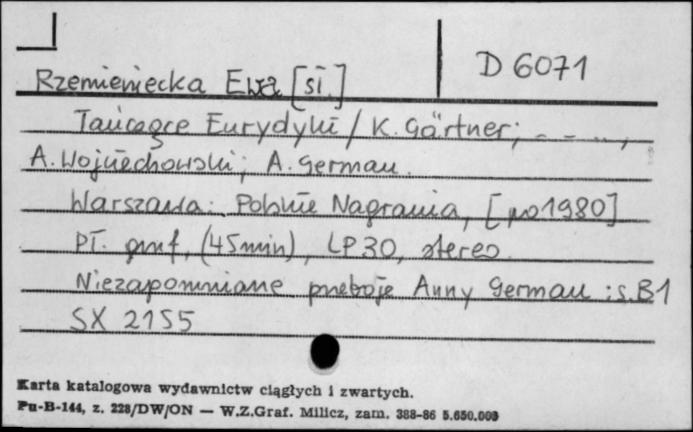 D 6071
Rzemieniecka Ewa [si.]
Tańczące Eurydyki / K. Gärtner; - - -,
A. Wojciechowski; A. German.
Warszawa: Polskie Nagrania, [po 1980]
Pł. gmf, (45min), LP30, stereo
Niezapomniane przeboje Anny German : s.B1
SX 2155
Karta katalogowa wydawnictw ciągłych i zwartych.
Pu-B-144, z. 228/DW/ON — W.Z.Graf. Milicz, zam. 388-86 5.650.000